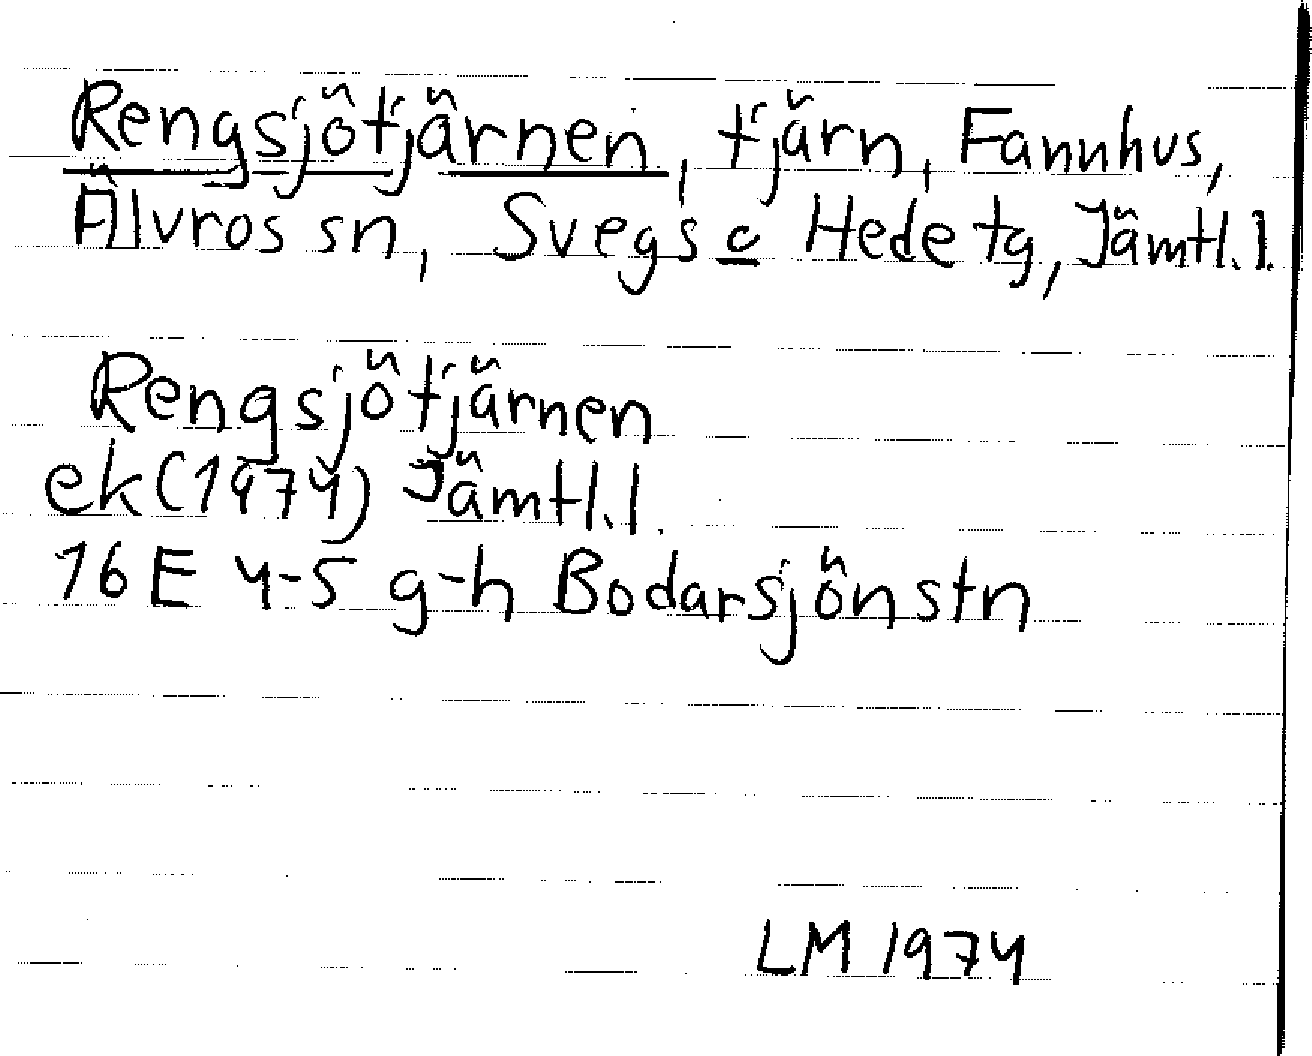 Rengsjötjärnen, tjärn, Fannhus,
Älvros sn, Svegs o Hede tg, Jämtl. l.
Rengsjötjärnen
ek (1974) Jämtl. l.
16 E 4-5 g-h Bodarsjön stn
LM 1974